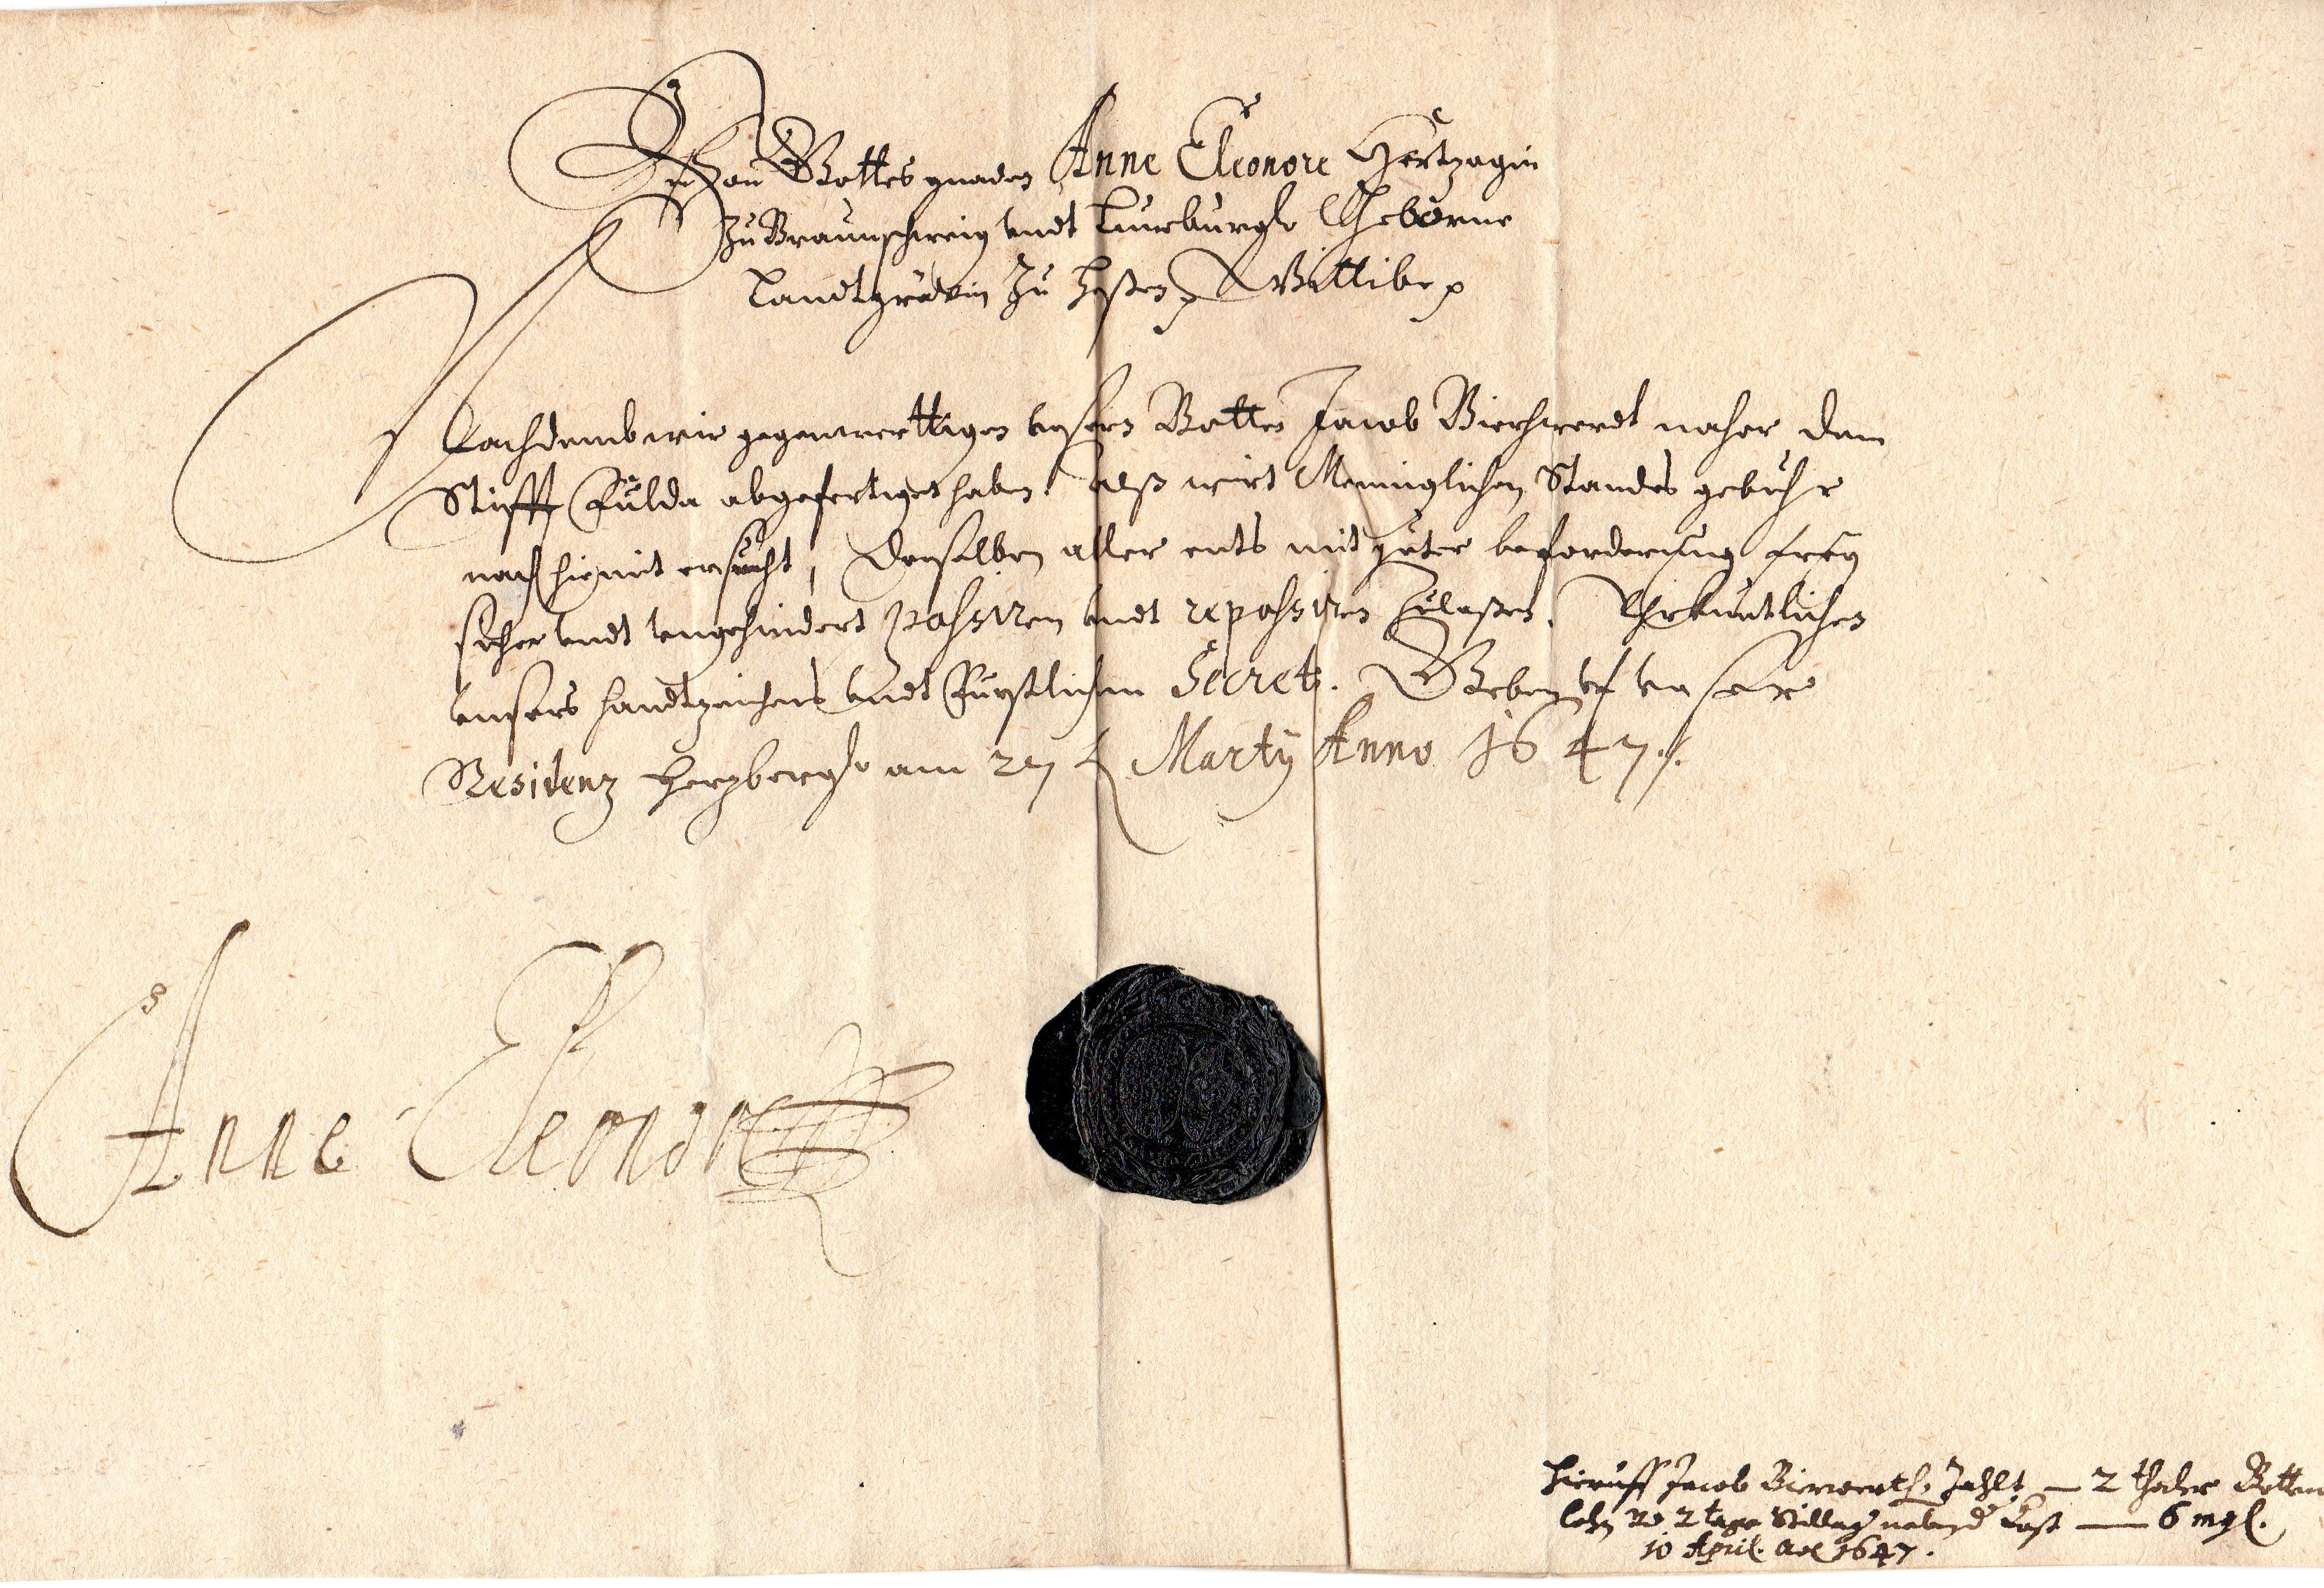 Von Gottes gnaden Anne Eleonore Hertzogin
Zu Braunschweig undt Luneburgk Geborne
Landtgrävin Zu Heßen, Wittibe p
Nachdemb wir gegenwerttigen unsern Botten Jacob Bierwerdt naher dem
Stifft Fulda abgefertiget haben. Alß wirt Menniglichen Standes gebuhr
nach hiemit ersucht, Denselben aller orts mit guter beforderung frey
sicher undt ungehindert passiren undt repassiren Zulaßen. Uhrkuntlichen
unsers handtzeichens undt Furstlichen Secrets. Geben uf unser
Residentz Hertzbergk am 27 Martij Anno 1647 ./.
Anne Eleonore
Hieruff Jacob Bierwerth Zahlt — 2 thaler Botten
lohn 2 tage Stillag nebend Kost — 6 mgl.
10 April. Ao 1647.